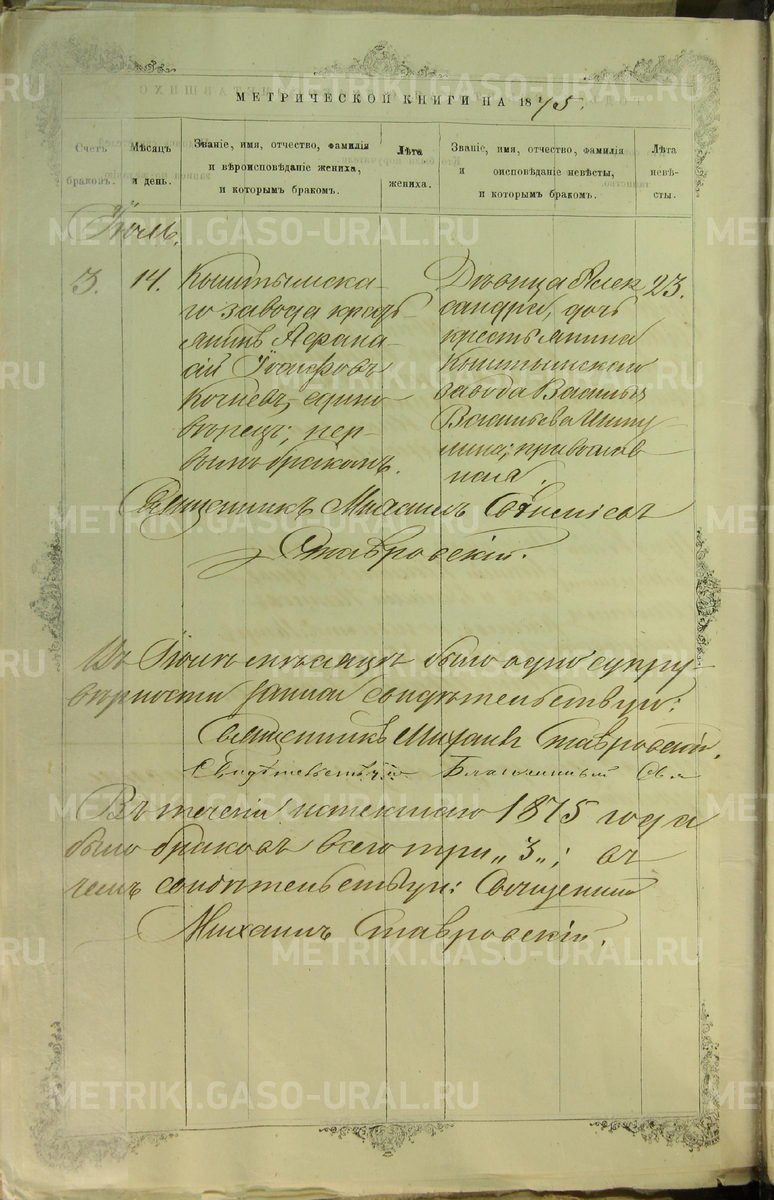 МЕТРИЧЕСКОЙ КНИГИ НА 1875.
Счетъ браковъ.
Мѣсяцъ и день.
Званіе, имя, отчество, фамилія
и вѣроисповѣданіе жениха,
и которымъ бракомъ.
Лѣта
жениха.
Званіе, имя, отчество, фамилія
и оисповѣданіе невѣсты,
и которымъ бракомъ.
Лѣта
невѣ-
сты.
Іюль.
3.
14.
Кыштымска-
го завода кресть
янинъ Афана-
сій Іосифовъ
единo
вѣрецъ; пер-
вымъ бракомъ.
Дѣвица Алек
сандра, дочь
крестьянина
Кыштымскаго
завода Василья
Васильева
православ
ная.
23.
Священникъ Михаилъ
Ставровскій.
Въ Іюлѣ мѣсяцѣ было одно супру-
вѣрности записи свидѣтельствую:
Священникъ Михаилъ Ставровскій.
Свидѣтельствую Благочинный Свя
Въ теченіи истекшаго 1875 года
было браковъ всего три „3„; въ
чемъ свидѣтельствую: Священник
Михаилъ Ставровскій.
METRIKI.GASO-URAL.RU